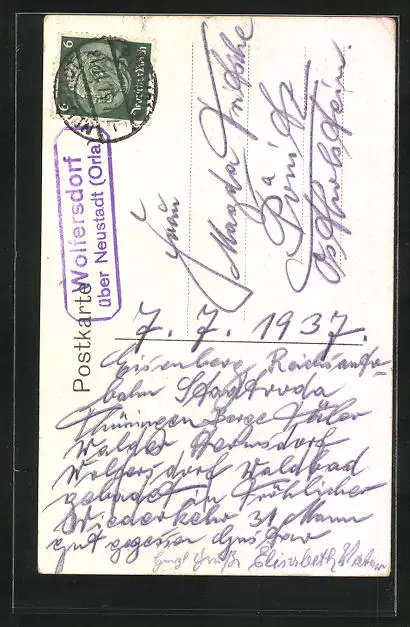 6 6
Deutsches Reich
Wolfersdorf
über Neustadt (Orla)
Postkarte
Frau
Magda Fritsche
Pönitz
Ostholstein.
7. 7. 1937.
Eisenberg, Reichsauto-
bahn Stadtroda
Thüringen Berge Täler
Wälder Hermsdorf
Wolfersdorf Waldbad
gebadet in Fröhlicher
Wiederkehr 31 Mann
gut gegessen Gustav
Herzl. Grüße Elisabeth